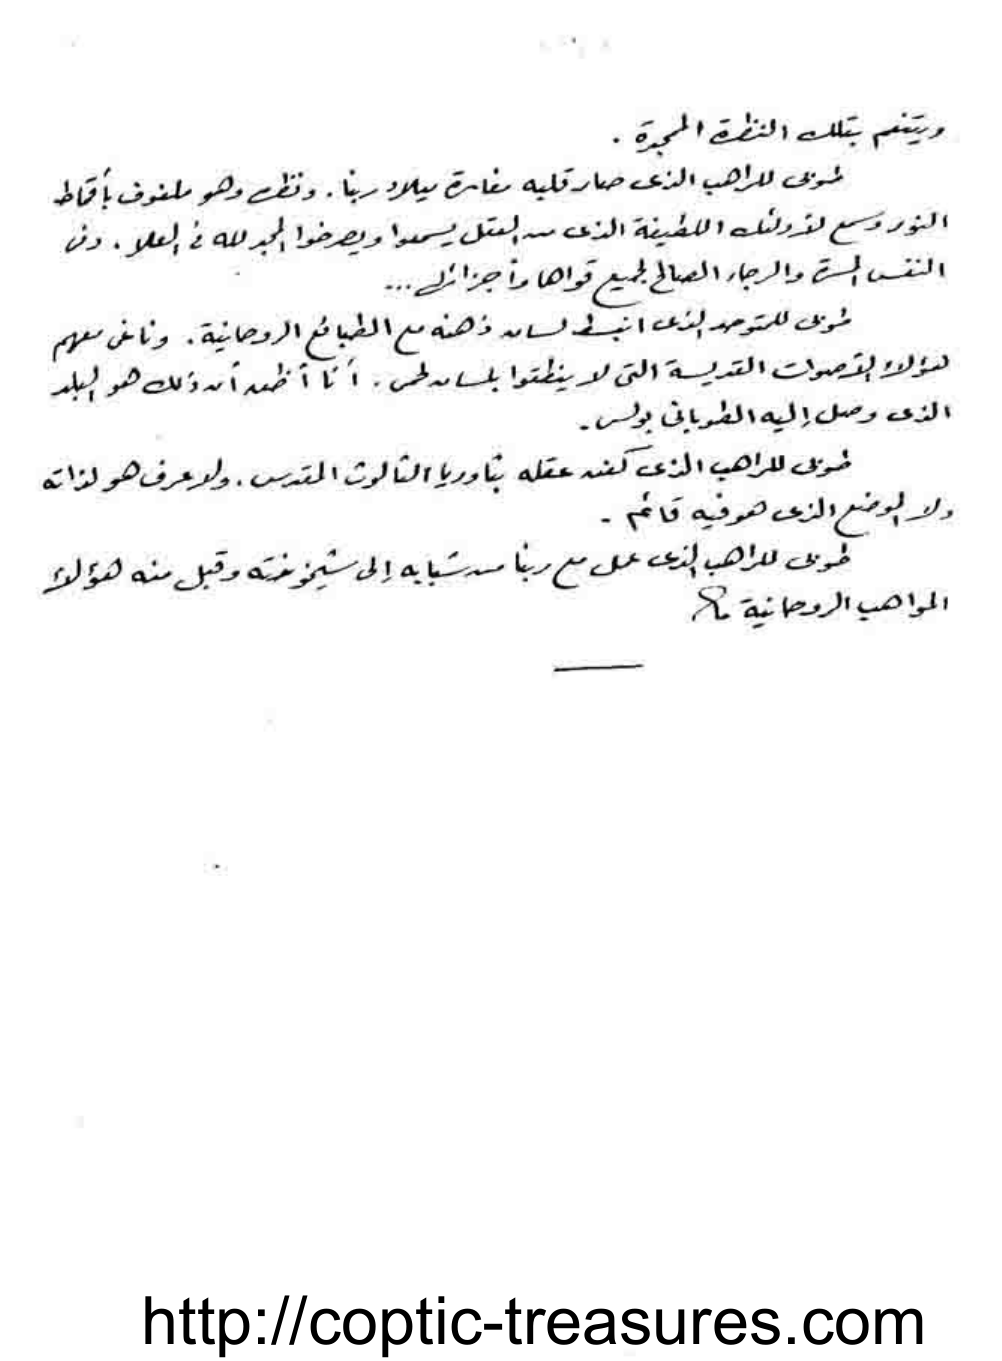 ويتنعم بتلك النظرة الممجدة .
طوبى للراهب الذى صار قلبه مغارة ميلاد ربنا . ونظره وهو ملفوف بأقماط
النور وسمع لأولئك اللطيفة الذى من العقل يسمعوا ويصرخوا المجد لله فى العلا . وفى
النفس المسرة والرجاء الصالح لجميع قواها وأجزائها ...
طوبى للمتوحد الذى انبسط لسان ذهنه مع الطبائع الروحانية . وناغى معهم
لهؤلاء الأصوات القديسة التى لا ينطقوا بلسان لحمى . أنا أظن أن ذلك هو البلد
الذى وصل إليه الطوبانى بولس .
طوبى للراهب الذى كفن عقله بثاوريا الثالوث المقدس . ولا عرف هو لذاته
ولا الوضع الذى هو فيه قائم .
طوبى للراهب الذى عمل مع ربنا من شبابه إلى شيخوخته وقبل منه هؤلاء
المواهب الروحانية
http://coptic-treasures.com